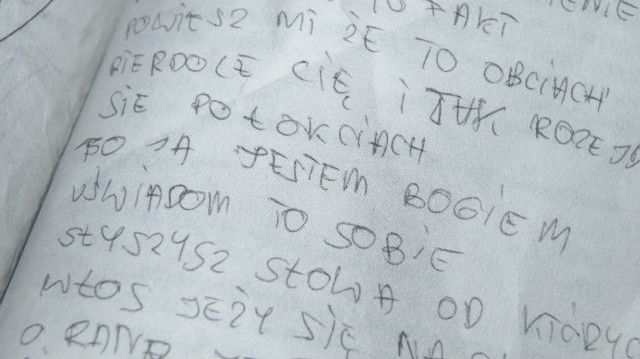 TO FAKT
POWIESZ MI ŻE TO OBCIACH
PIERDOLE CIĘ I TAK ROZEJD
SIE PO ŁOKCIACH
BO JA JESTEM BOGIEM
UŚWIADOM TO SOBIE
SŁYSZYSZ SŁOWA OD KTÓRYC
WŁOS JEŻY SIĘ NA
O RANY